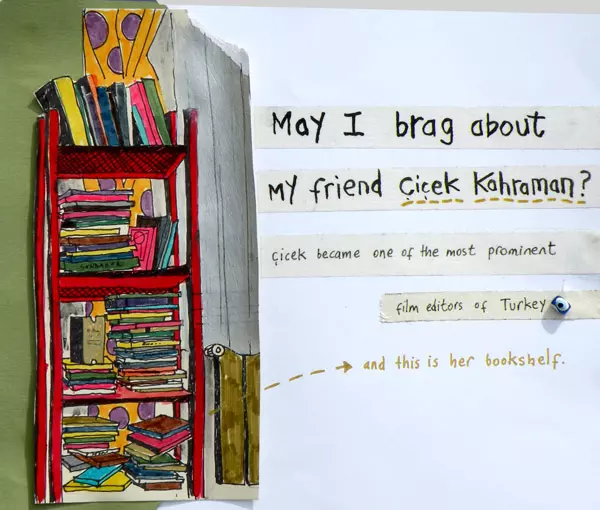 May I brag about
My friend Çiçek Kahraman?
Çiçek became one of the most prominent
film editors of Turkey
and this is her bookshelf.